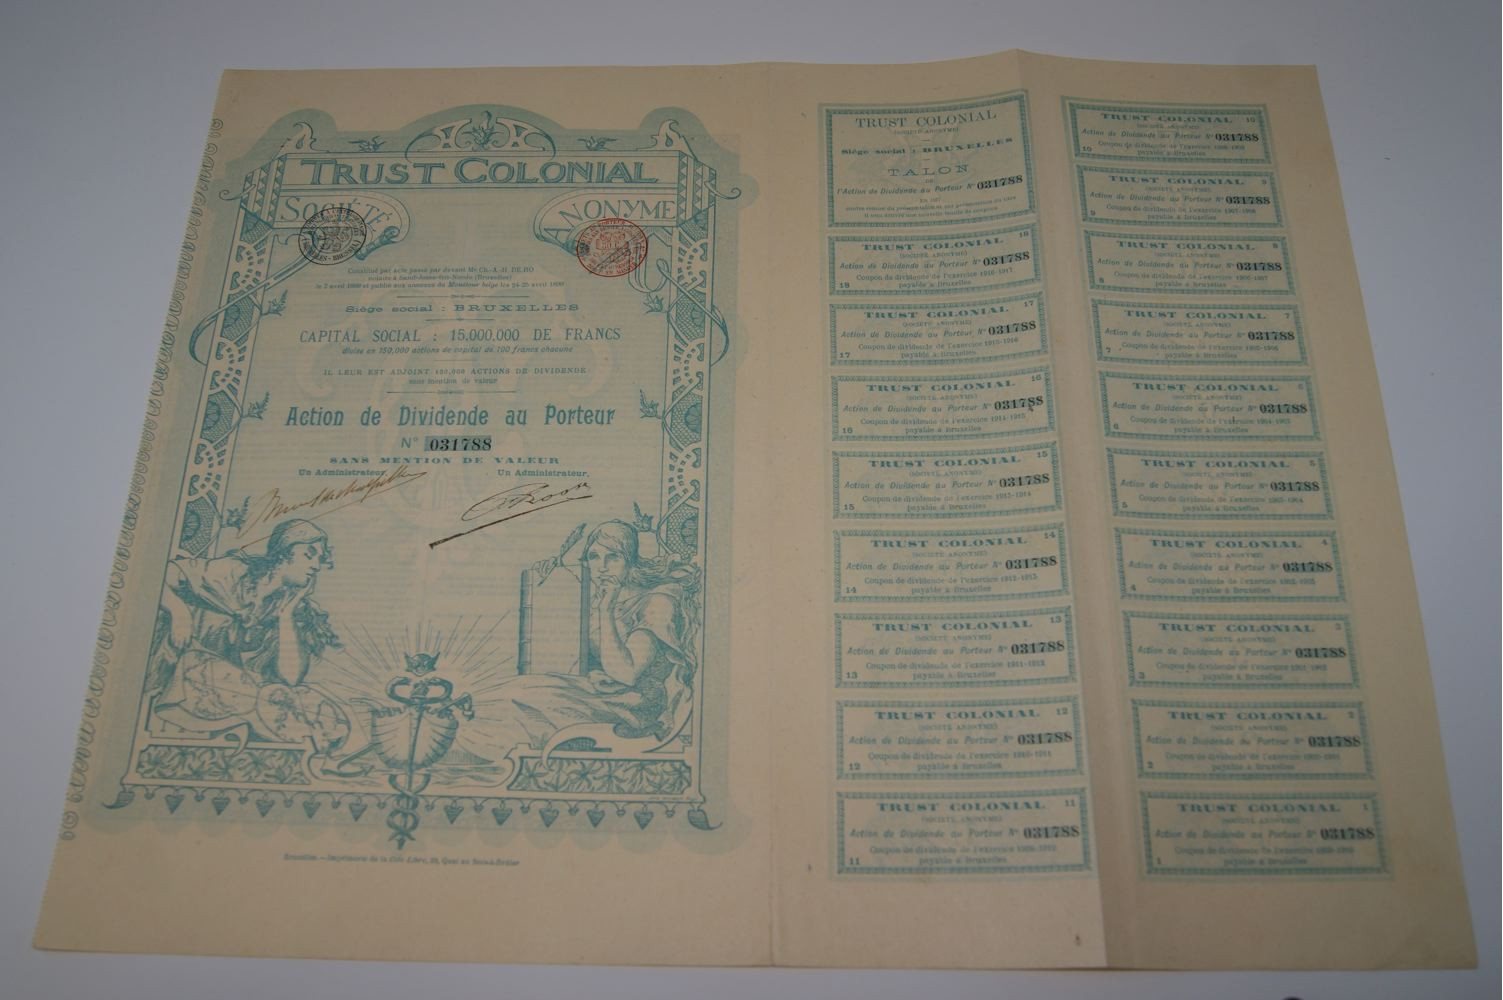 TRUST COLONIAL
SOCIÉTÉ ANONYME
Constitué par acte passé par devant Me Ch.-A.-H. DE RO
notaire à Saint-Josse-ten-Noode (Bruxelles)
le 7 avril 1899 et publié aux annexes du Moniteur belge les 24-25 avril 1899
Siège social : BRUXELLES
CAPITAL SOCIAL : 15.000.000 DE FRANCS
divisé en 150,000 actions de capital de 100 francs chacune
IL LEUR EST ADJOINT 150,000 ACTIONS DE DIVIDENDE
sans mention de valeur
Action de Dividende au Porteur
N° 031788
SANS MENTION DE VALEUR
Un Administrateur, Un Administrateur,
Bruxelles. — Imprimerie de la Cote Libre,
TRUST COLONIAL
(SOCIÉTÉ ANONYME)
Siège social : BRUXELLES
TALON
DE
l'Action de Dividende au Porteur N° 031788
TRUST COLONIAL 18
(SOCIÉTÉ ANONYME)
Action de Dividende au Porteur N° 031788
Coupon de dividende de l'exercice 1916-1917
18 payable à Bruxelles
TRUST COLONIAL 17
(SOCIÉTÉ ANONYME)
Action de Dividende au Porteur N° 031788
Coupon de dividende de l'exercice 1915-1916
17 payable à Bruxelles
TRUST COLONIAL 16
(SOCIÉTÉ ANONYME)
Action de Dividende au Porteur N° 031788
Coupon de dividende de l'exercice 1914-1915
16 payable à Bruxelles
TRUST COLONIAL 15
(SOCIÉTÉ ANONYME)
Action de Dividende au Porteur N° 031788
Coupon de dividende de l'exercice 1913-1914
15 payable à Bruxelles
TRUST COLONIAL 14
(SOCIÉTÉ ANONYME)
Action de Dividende au Porteur N° 031788
Coupon de dividende de l'exercice 1912-1913
14 payable à Bruxelles
TRUST COLONIAL 13
(SOCIÉTÉ ANONYME)
Action de Dividende au Porteur N° 031788
Coupon de dividende de l'exercice 1911-1912
13 payable à Bruxelles
TRUST COLONIAL 12
(SOCIÉTÉ ANONYME)
Action de Dividende au Porteur N° 031788
Coupon de dividende de l'exercice 1910-1911
12 payable à Bruxelles
TRUST COLONIAL 11
(SOCIÉTÉ ANONYME)
Action de Dividende au Porteur N° 031788
Coupon de dividende de l'exercice
11 payable à Bruxelles
TRUST COLONIAL 10
(SOCIÉTÉ ANONYME)
Action de Dividende au Porteur N° 031788
Coupon de dividende de l'exercice 1908-1909
10 payable à Bruxelles
TRUST COLONIAL 9
(SOCIÉTÉ ANONYME)
Action de Dividende au Porteur N° 031788
Coupon de dividende de l'exercice 1907-1908
9 payable à Bruxelles
TRUST COLONIAL 8
(SOCIÉTÉ ANONYME)
Action de Dividende au Porteur N° 031788
Coupon de dividende de l'exercice 1906-1907
8 payable à Bruxelles
TRUST COLONIAL 7
(SOCIÉTÉ ANONYME)
Action de Dividende au Porteur N° 031788
Coupon de dividende de l'exercice 1905-1906
7 payable à Bruxelles
TRUST COLONIAL 6
(SOCIÉTÉ ANONYME)
Action de Dividende au Porteur N° 031788
Coupon de dividende de l'exercice 1904-1905
6 payable à Bruxelles
TRUST COLONIAL 5
(SOCIÉTÉ ANONYME)
Action de Dividende au Porteur N° 031788
Coupon de dividende de l'exercice 1903-1904
5 payable à Bruxelles
TRUST COLONIAL 4
(SOCIÉTÉ ANONYME)
Action de Dividende au Porteur N° 031788
Coupon de dividende de l'exercice 1902-1903
4 payable à Bruxelles
TRUST COLONIAL 3
(SOCIÉTÉ ANONYME)
Action de Dividende au Porteur N° 031788
Coupon de dividende de l'exercice 1901-1902
3 payable à Bruxelles
TRUST COLONIAL 2
(SOCIÉTÉ ANONYME)
Action de Dividende au Porteur N° 031788
Coupon de dividende de l'exercice 1900-1901
2 payable à Bruxelles
TRUST COLONIAL 1
(SOCIÉTÉ ANONYME)
Action de Dividende au Porteur N° 031788
Coupon de dividende de l'exercice
1 payable à Bruxelles